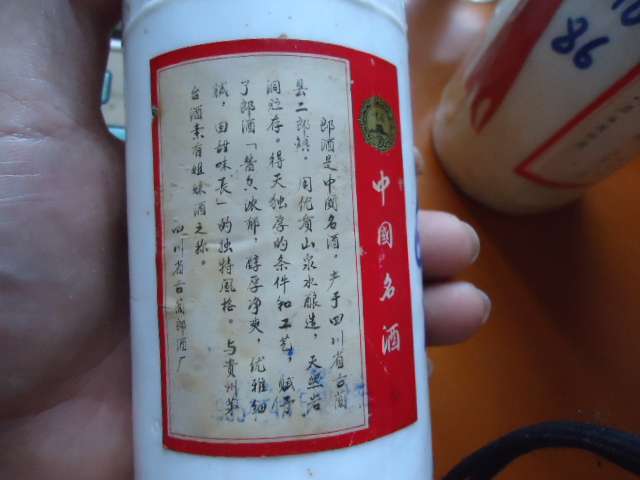 中國名酒
郎酒是中国名酒，产于四川省古蔺
县二郎镇。用优质山泉水酿造，天然岩
洞贮存。得天独厚的条件和工艺，赋予
了郎酒「酱香浓郁，醇厚净爽，优雅细
腻，回甜味长」的独特風格。与貴州茅
台酒素有姐妹酒之称。
四川省古蔺郎酒厂
86